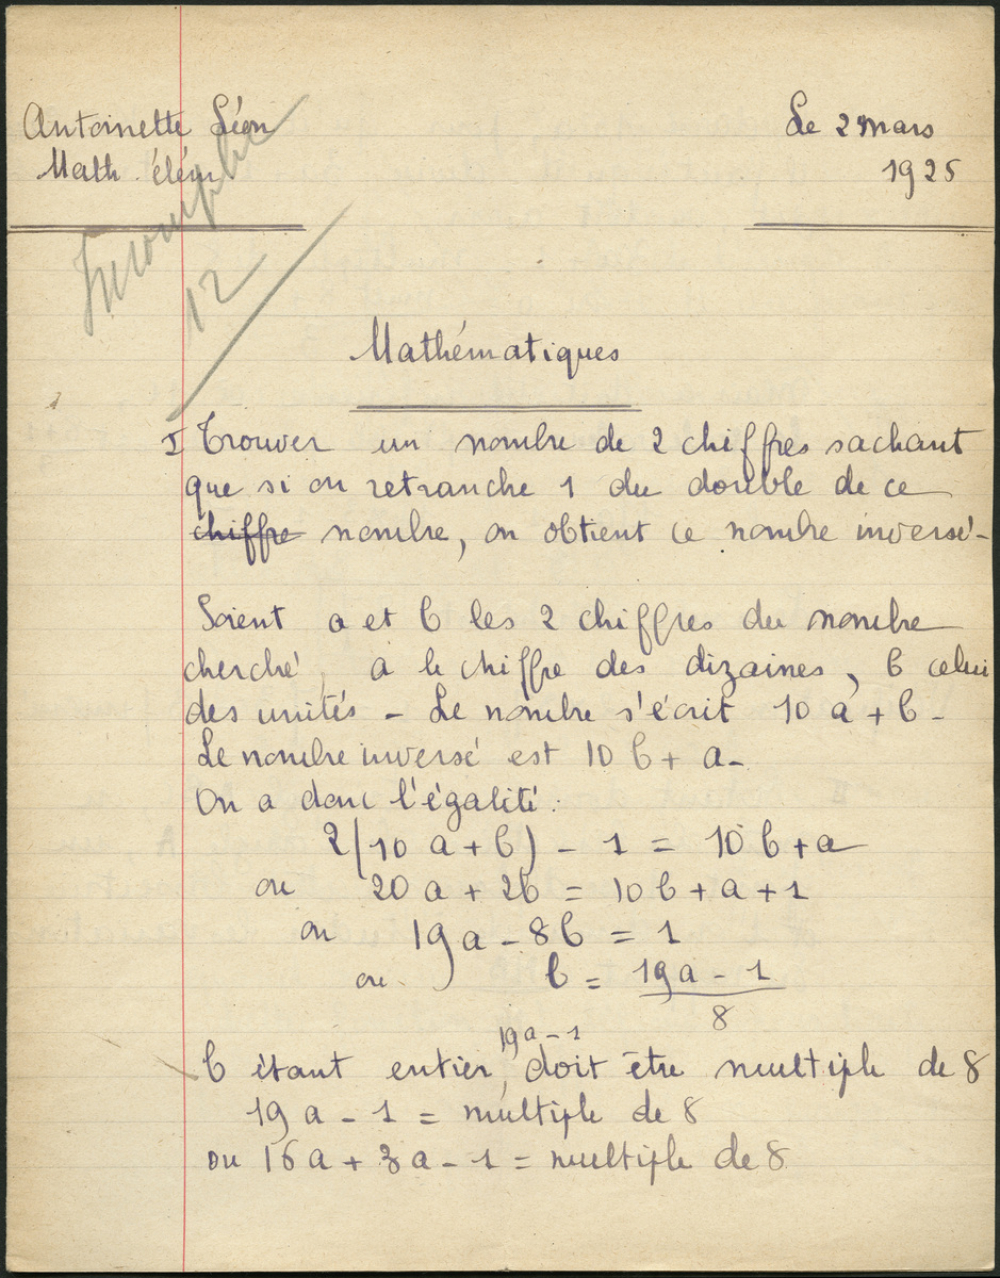 Antoinette Léon
Le 2 mars
Math. élém
1925
Incomplet
12
Mathématiques
I Trouver un nombre de 2 chiffres sachant
que si on retranche 1 du double de ce
chiffre nombre, on obtient ce nombre inversé -
Soient a et b les 2 chiffres du nombre
cherché, a le chiffre des dizaines, b celui
des unités - Le nombre s'écrit 10 a + b -
Le nombre inversé est 10 b + a -
On a donc l'égalité :
2(10 a + b) - 1 = 10 b + a
ou 20 a + 2b = 10 b + a + 1
ou 19 a - 8b = 1
ou b = 19a - 1
8
19a - 1
b étant entier, doit être multiple de 8
19 a - 1 = multiple de 8
ou 16 a + 3 a - 1 = multiple de 8